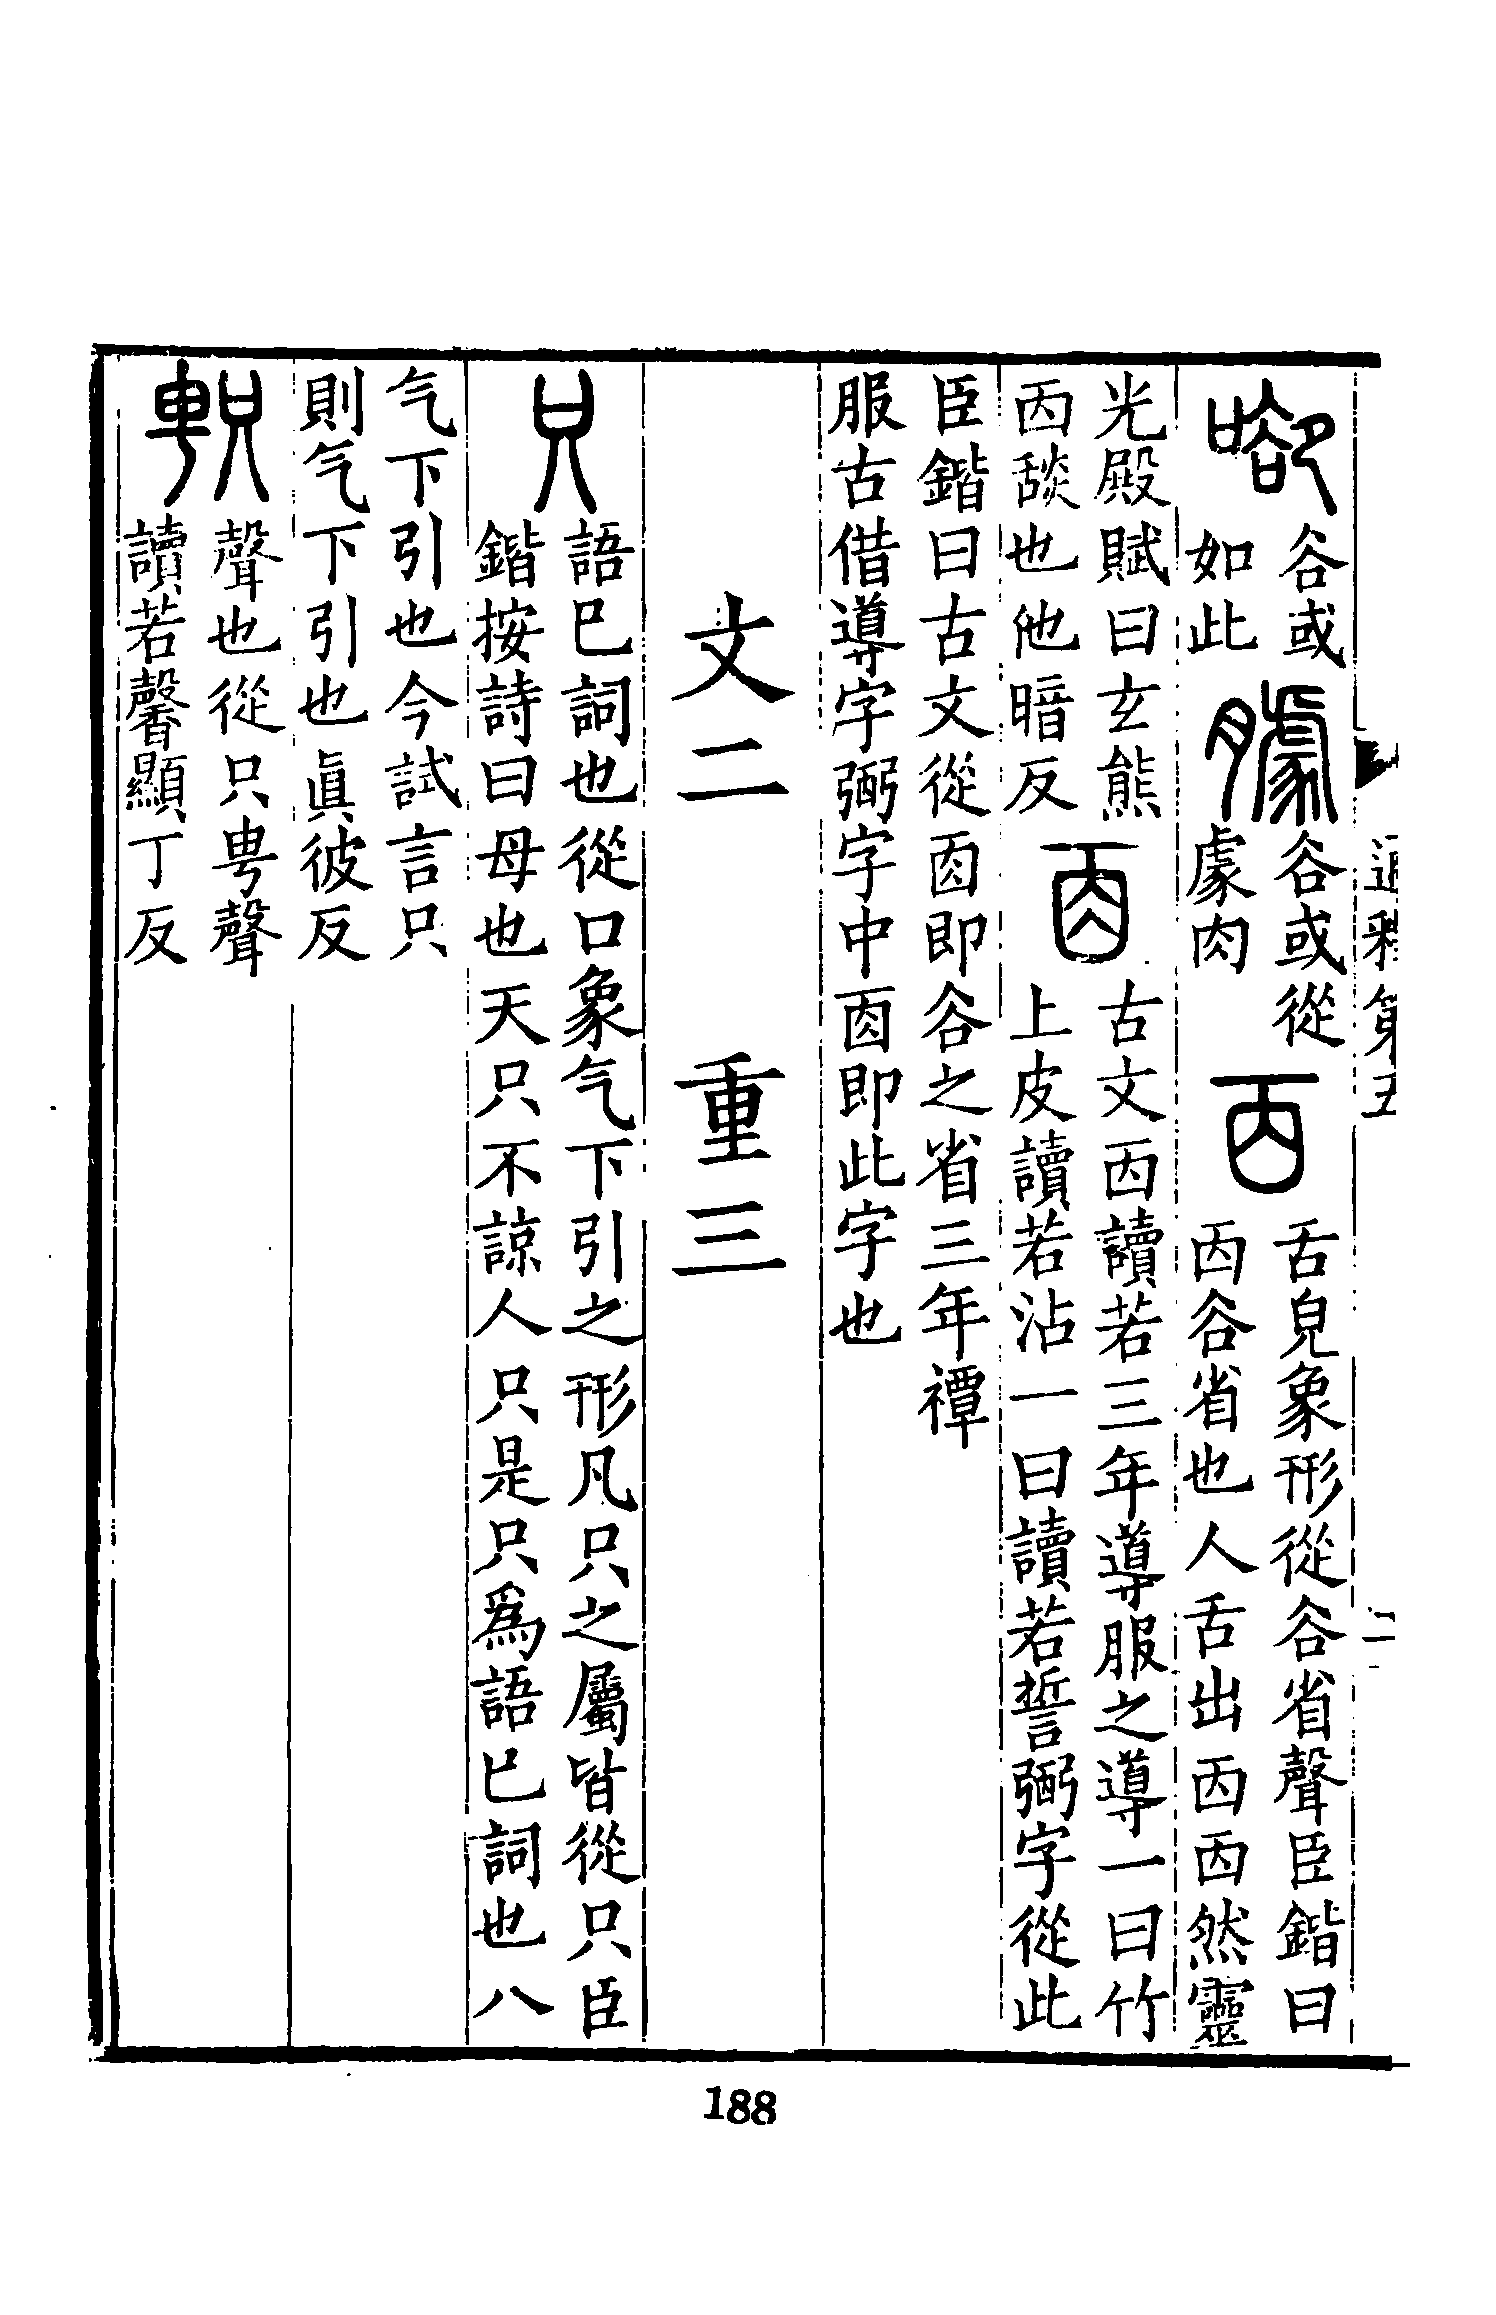 通釋第五
二
谷或
如此
谷或從
豦肉
舌皃象形從谷省聲臣鍇曰
㐁谷省也人舌出㐁㐁然靈
光殿賦曰玄熊
㐁舕也他暗反
古文㐁讀若三年導服之導一曰竹
上皮讀若沾一曰讀若誓弼字從此
臣鍇曰古文從㐁即谷之省三年禫
服古借導字弼字中㐁即此字也
文二 重三
只
語巳詞也從口象气下引之形凡只之屬皆從只臣
鍇按詩曰母也天只不諒人只是只爲語巳詞也八
气下引也今試言只
則气下引也眞彼反
聲也從只甹聲
讀若馨顯丁反
188